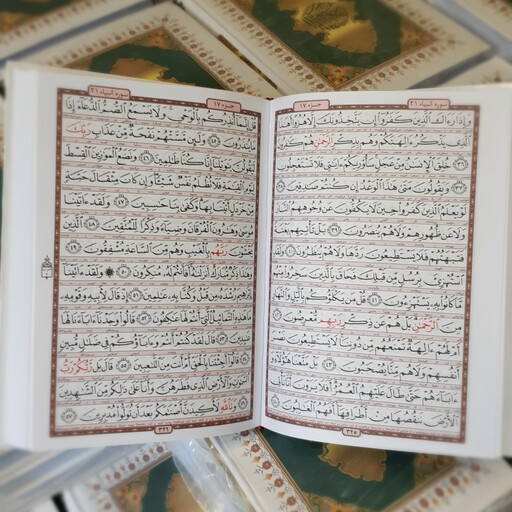 سوره انبیاء ۲۱
جزء ۱۷
وَإِذَا رَءَاكَ الَّذِينَ كَفَرُوا إِن يَتَّخِذُونَكَ إِلَّا هُزُوًا أَهَٰذَا
الَّذِي يَذْكُرُ ءَالِهَتَكُمْ وَهُم بِذِكْرِ الرَّحْمَٰنِ هُمْ كَٰفِرُونَ
﴿٣٦﴾ خُلِقَ الْإِنسَٰنُ مِنْ عَجَلٍ سَأُورِيكُمْ ءَايَٰتِي فَلَا تَسْتَعْجِلُونِ
﴿٣٧﴾ وَيَقُولُونَ مَتَىٰ هَٰذَا الْوَعْدُ إِن كُنتُمْ صَٰدِقِينَ ﴿٣٨﴾
لَوْ يَعْلَمُ الَّذِينَ كَفَرُوا حِينَ لَا يَكُفُّونَ عَن وُجُوهِهِمُ النَّارَ
وَلَا عَن ظُهُورِهِمْ وَلَا هُمْ يُنصَرُونَ ﴿٣٩﴾ بَلْ تَأْتِيهِم بَغْتَةً
فَتَبْهَتُهُمْ فَلَا يَسْتَطِيعُونَ رَدَّهَا وَلَا هُمْ يُنظَرُونَ ﴿٤٠﴾ وَلَقَدِ
اسْتُهْزِئَ بِرُسُلٍ مِّن قَبْلِكَ فَحَاقَ بِالَّذِينَ سَخِرُوا مِنْهُم
مَّا كَانُوا بِهِ يَسْتَهْزِءُونَ ﴿٤١﴾ قُلْ مَن يَكْلَؤُكُم بِالَّيْلِ وَالنَّهَارِ
مِنَ الرَّحْمَٰنِ بَلْ هُمْ عَن ذِكْرِ رَبِّهِم مُّعْرِضُونَ ﴿٤٢﴾
أَمْ لَهُمْ ءَالِهَةٌ تَمْنَعُهُم مِّن دُونِنَا لَا يَسْتَطِيعُونَ نَصْرَ
أَنفُسِهِمْ وَلَا هُم مِّنَّا يُصْحَبُونَ ﴿٤٣﴾ بَلْ مَتَّعْنَا هَٰؤُلَاءِ وَ
ءَابَاءَهُمْ حَتَّىٰ طَالَ عَلَيْهِمُ الْعُمُرُ أَفَلَا يَرَوْنَ أَنَّا نَأْتِي
الْأَرْضَ نَنقُصُهَا مِنْ أَطْرَافِهَا أَفَهُمُ الْغَٰلِبُونَ ﴿٤٤﴾
۳۲۵
جزء ۱۷
سوره انبیاء ۲۱
قُلْ إِنَّمَا أُنذِرُكُم بِالْوَحْيِ وَلَا يَسْمَعُ الصُّمُّ الدُّعَاءَ إِذَا
مَا يُنذَرُونَ ﴿٤٥﴾ وَلَئِن مَّسَّتْهُمْ نَفْحَةٌ مِّنْ عَذَابِ رَبِّكَ
لَيَقُولُنَّ يَٰوَيْلَنَا إِنَّا كُنَّا ظَٰلِمِينَ ﴿٤٦﴾ وَنَضَعُ الْمَوَٰزِينَ الْقِسْطَ
لِيَوْمِ الْقِيَٰمَةِ فَلَا تُظْلَمُ نَفْسٌ شَيْئًا وَإِن كَانَ مِثْقَالَ حَبَّةٍ
مِّنْ خَرْدَلٍ أَتَيْنَا بِهَا وَكَفَىٰ بِنَا حَٰسِبِينَ ﴿٤٧﴾ وَلَقَدْ ءَاتَيْنَا
مُوسَىٰ وَهَٰرُونَ الْفُرْقَانَ وَضِيَاءً وَذِكْرًا لِّلْمُتَّقِينَ ﴿٤٨﴾
الَّذِينَ يَخْشَوْنَ رَبَّهُم بِالْغَيْبِ وَهُم مِّنَ السَّاعَةِ مُشْفِقُونَ ﴿٤٩﴾
وَهَٰذَا ذِكْرٌ مُّبَارَكٌ أَنزَلْنَٰهُ أَفَأَنتُمْ لَهُ مُنكِرُونَ ﴿٥٠﴾ وَلَقَدْ ءَاتَيْنَا
إِبْرَٰهِيمَ رُشْدَهُ مِن قَبْلُ وَكُنَّا بِهِ عَٰلِمِينَ ﴿٥١﴾ إِذْ قَالَ لِأَبِيهِ وَقَوْمِهِ
مَا هَٰذِهِ التَّمَاثِيلُ الَّتِي أَنتُمْ لَهَا عَٰكِفُونَ ﴿٥٢﴾ قَالُوا وَجَدْنَا ءَابَاءَنَا لَهَا
عَٰبِدِينَ ﴿٥٣﴾ قَالَ لَقَدْ كُنتُمْ أَنتُمْ وَءَابَاؤُكُمْ فِي ضَلَٰلٍ مُّبِينٍ
﴿٥٤﴾ قَالُوا أَجِئْتَنَا بِالْحَقِّ أَمْ أَنتَ مِنَ اللَّٰعِبِينَ ﴿٥٥﴾ قَالَ بَل رَّبُّكُمْ رَبُّ
السَّمَٰوَٰتِ وَالْأَرْضِ الَّذِي فَطَرَهُنَّ وَأَنَا عَلَىٰ ذَٰلِكُم مِّنَ الشَّٰهِدِينَ
﴿٥٦﴾ وَتَاللَّهِ لَأَكِيدَنَّ أَصْنَٰمَكُم بَعْدَ أَن تُوَلُّوا مُدْبِرِينَ ﴿٥٧﴾
۳۲۶